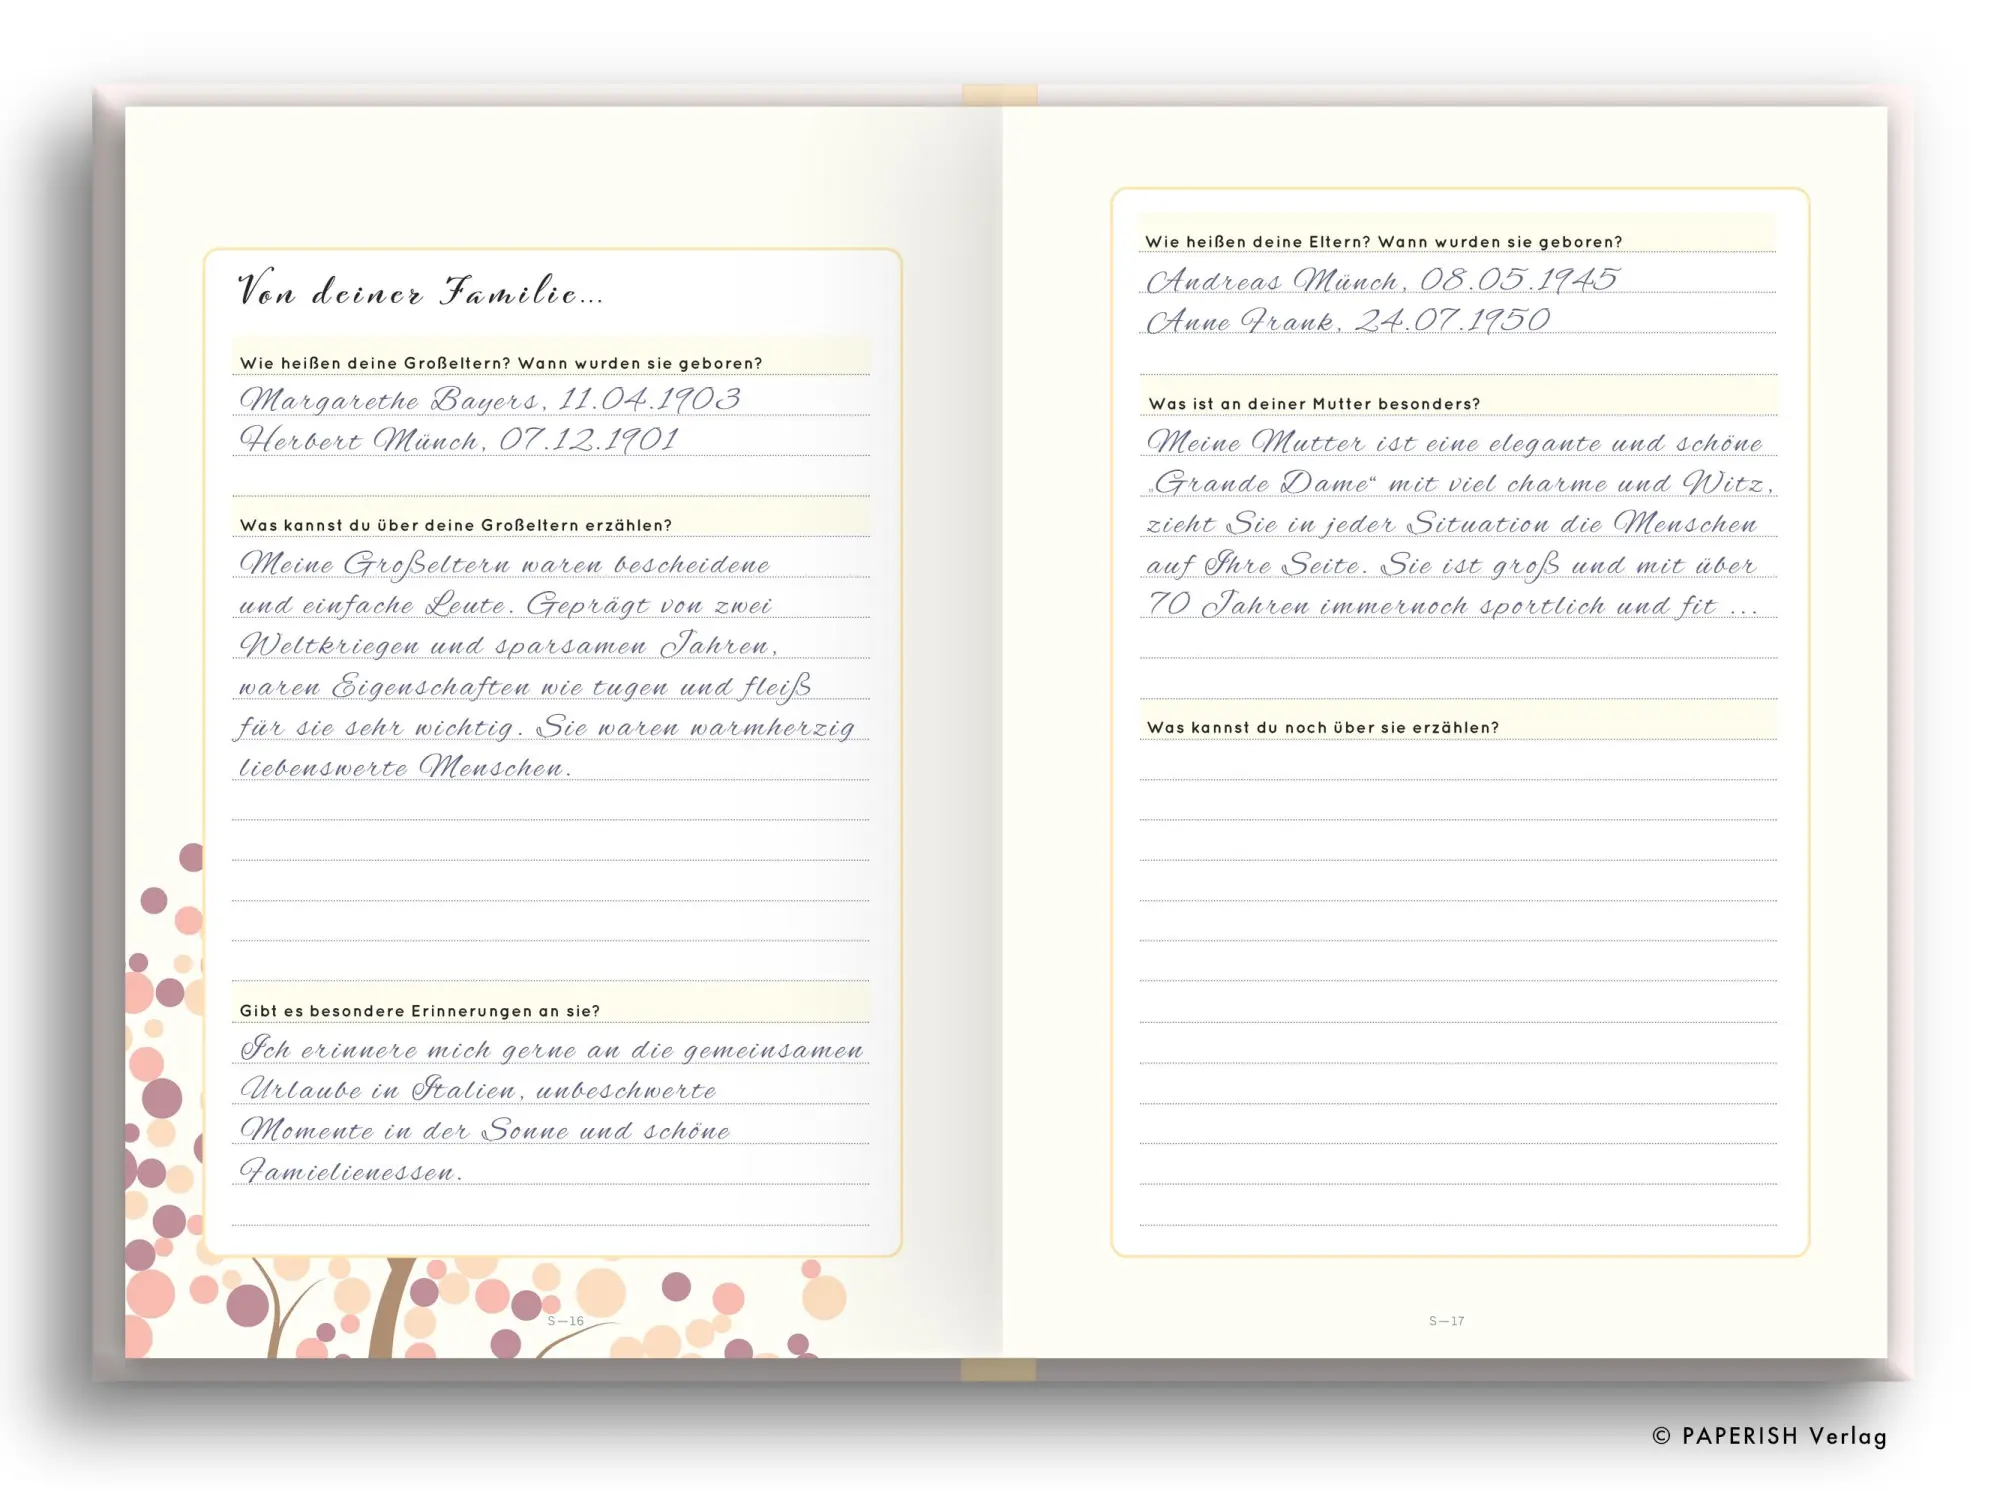 Von deiner Familie...
Wie heißen deine Großeltern? Wann wurden sie geboren?
Margarethe Bayers, 11.04.1903
Herbert Münch, 07.12.1901
Was kannst du über deine Großeltern erzählen?
Meine Großeltern waren bescheidene
und einfache Leute. Geprägt von zwei
Weltkriegen und sparsamen Jahren,
waren Eigenschaften wie tugen und fleiß
für sie sehr wichtig. Sie waren warmherzig
liebenswerte Menschen.
Gibt es besondere Erinnerungen an sie?
Ich erinnere mich gerne an die gemeinsamen
Urlaube in Italien, unbeschwerte
Momente in der Sonne und schöne
Famielienessen.
S—16
Wie heißen deine Eltern? Wann wurden sie geboren?
Andreas Münch, 08.05.1945
Anne Frank, 24.07.1950
Was ist an deiner Mutter besonders?
Meine Mutter ist eine elegante und schöne
„Grande Dame“ mit viel charme und Witz,
zieht Sie in jeder Situation die Menschen
auf Ihre Seite. Sie ist groß und mit über
70 Jahren immernoch sportlich und fit ...
Was kannst du noch über sie erzählen?
S—17
© PAPERISH Verlag